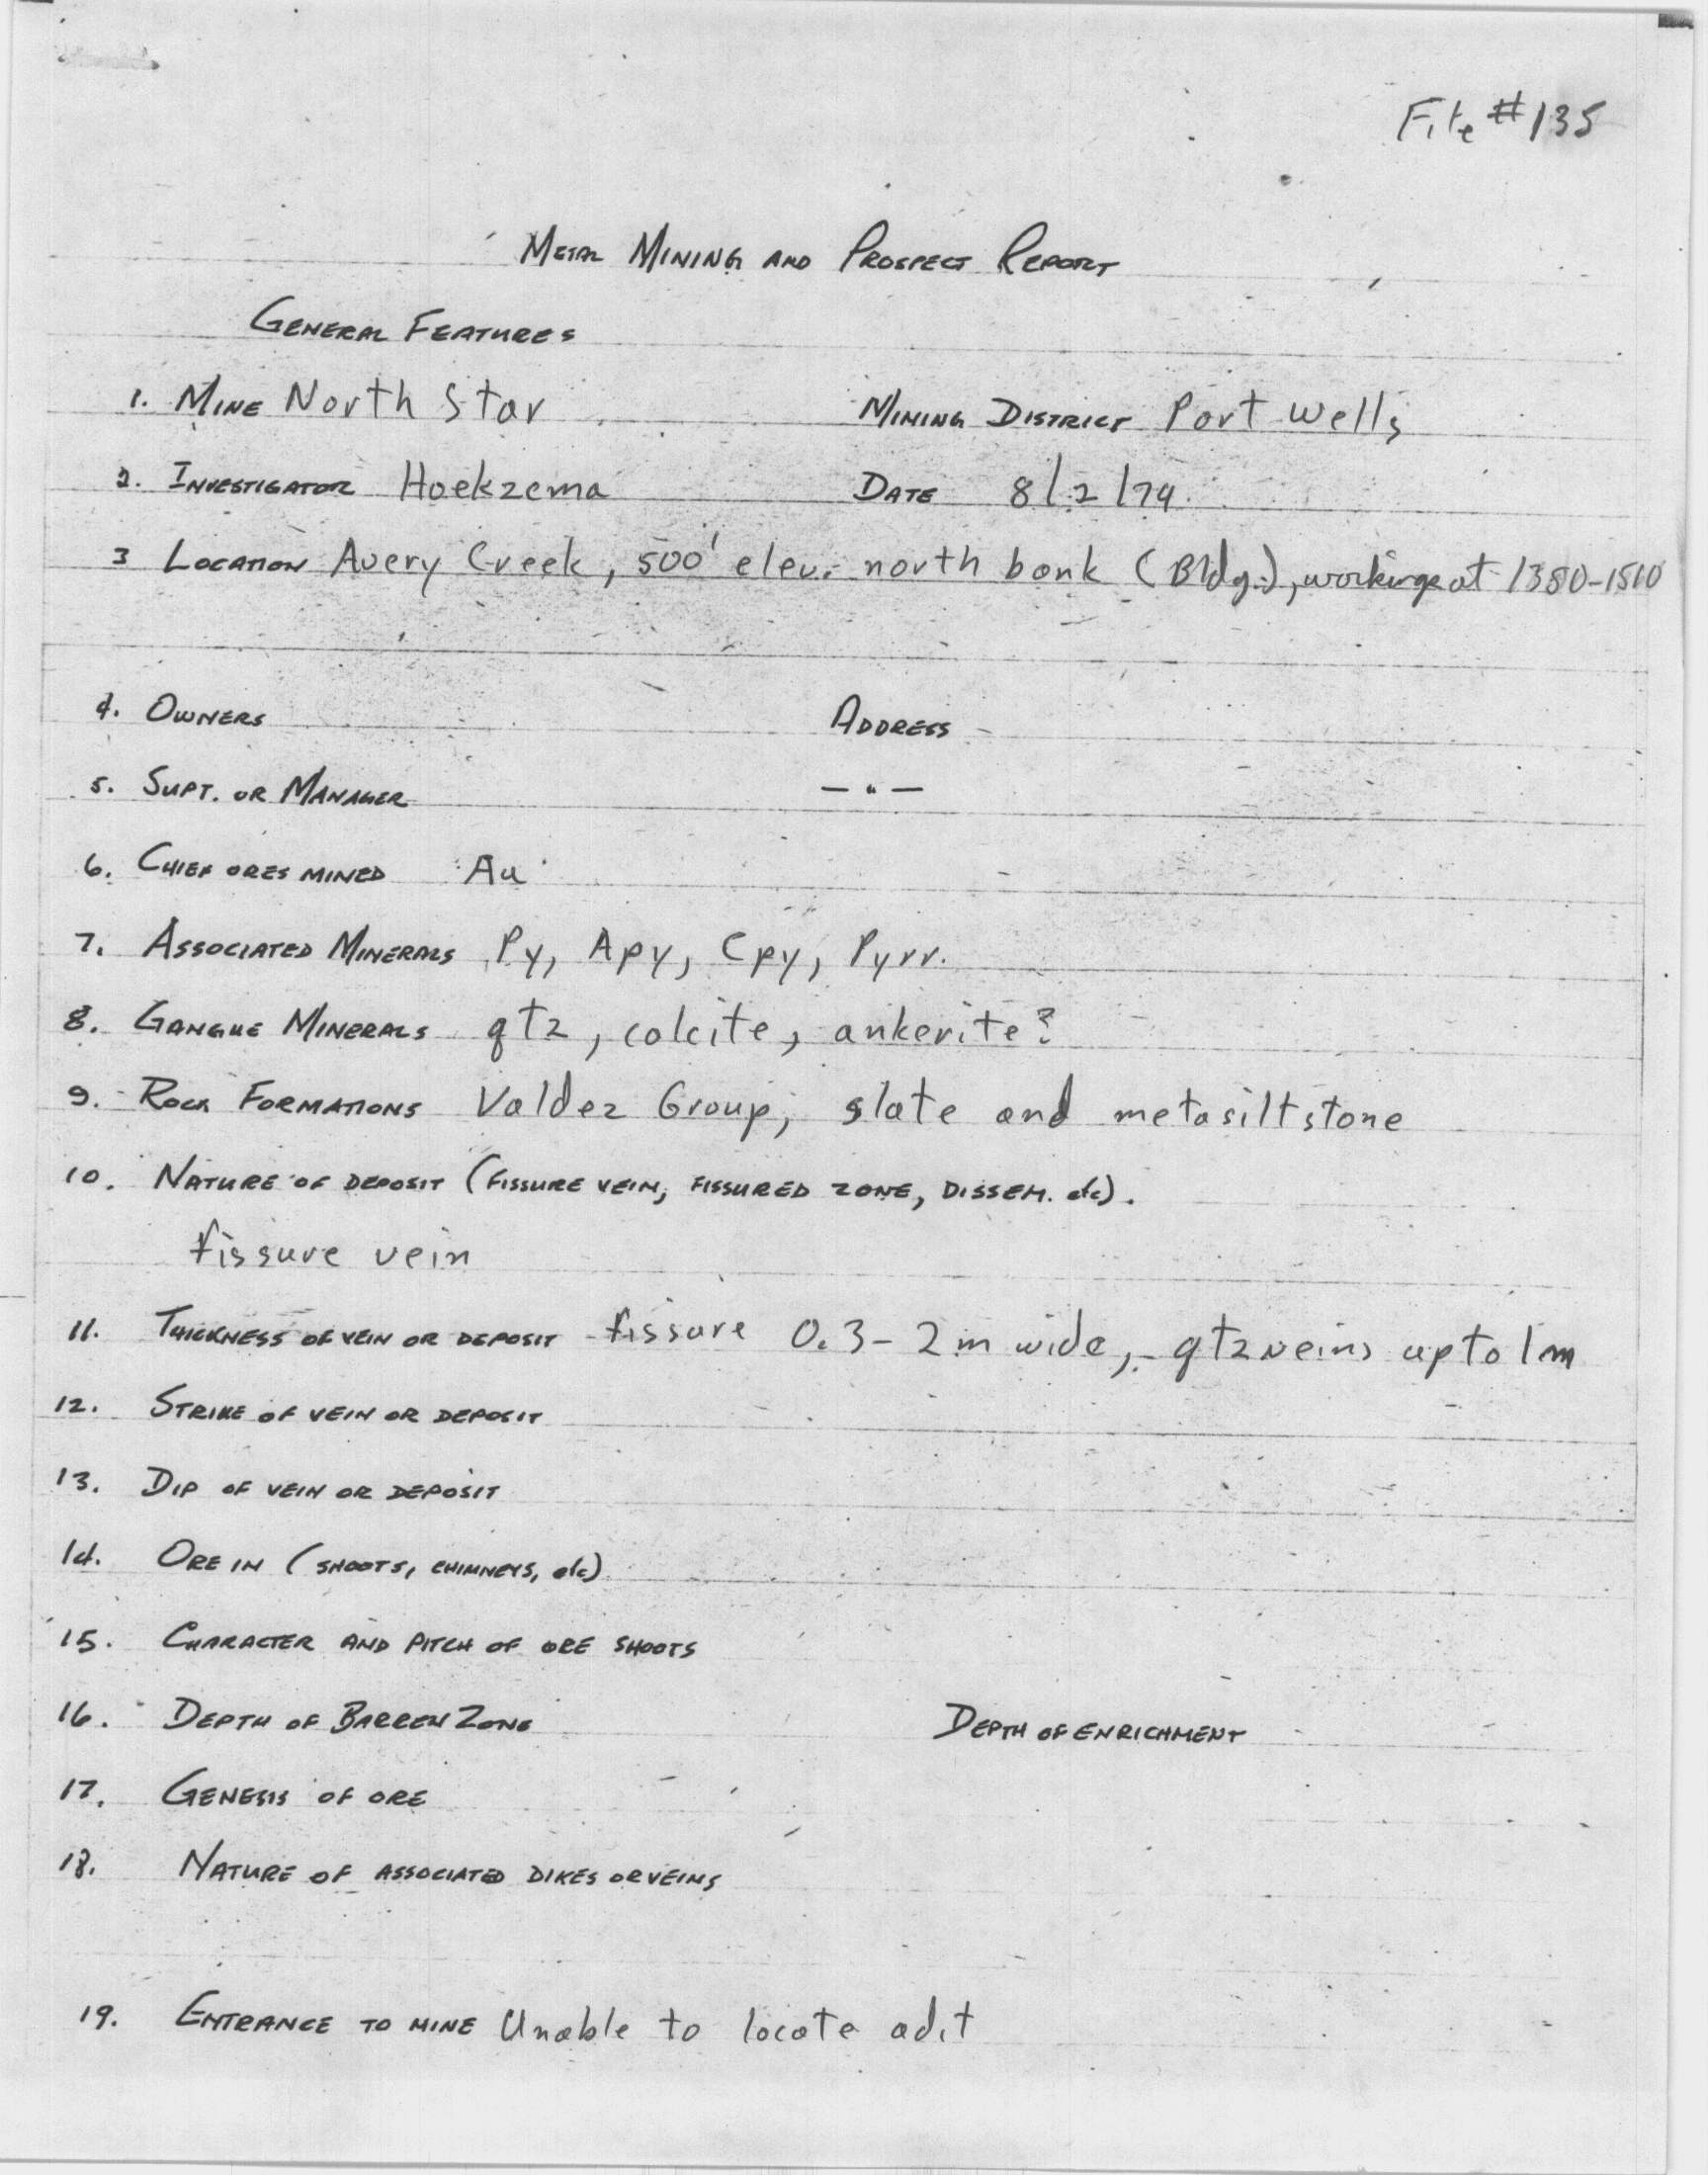 File #135
METAL MINING AND PROSPECT REPORT
GENERAL FEATURES
1. MINE North Star MINING DISTRICT Port Wells
2. INVESTIGATOR Hoekzema DATE 8/2/79
3 LOCATION Avery Creek, 500' elev. north bank (Bldg.), workings at 1380-1510
4. OWNERS ADDRESS
5. SUPT. OR MANAGER — " —
6. CHIEF ORES MINED Au
7. ASSOCIATED MINERALS Py, Apy, Cpy, Pyrr.
8. GANGUE MINERALS qtz, calcite, ankerite?
9. ROCK FORMATIONS Valdez Group, slate and metasiltstone
10. NATURE OF DEPOSIT (FISSURE VEIN, FISSURED ZONE, DISSEM. etc).
fissure vein
11. THICKNESS OF VEIN OR DEPOSIT fissure 0.3-2m wide, qtz veins up to 1m
12. STRIKE OF VEIN OR DEPOSIT
13. DIP OF VEIN OR DEPOSIT
14. ORE IN (SHOOTS, CHIMNEYS, etc)
15. CHARACTER AND PITCH OF ORE SHOOTS
16. DEPTH OF BARREN ZONE DEPTH OF ENRICHMENT
17. GENESIS OF ORE
18. NATURE OF ASSOCIATED DIKES OR VEINS
19. ENTRANCE TO MINE Unable to locate adit